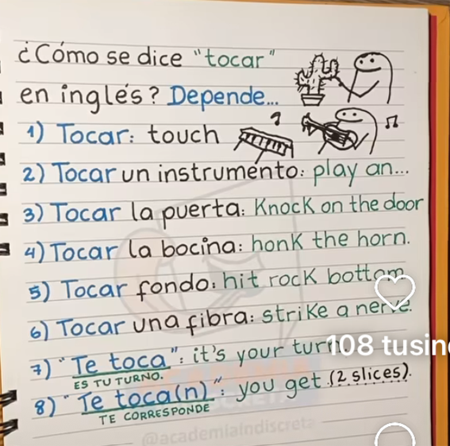 ¿Cómo se dice "tocar"
en inglés? Depende...
1) Tocar: touch
?
2) Tocar un instrumento: play an...
3) Tocar la puerta: Knock on the door
4) Tocar la bocina: honk the horn.
5) Tocar fondo: hit rock bottom
6) Tocar una fibra: strike a nerve.
7) "Te toca": it's your turn.
ES TU TURNO.
108 tusin
8) "Te toca(n)": you get (2 slices).
TE CORRESPONDE
@academiaindiscreta